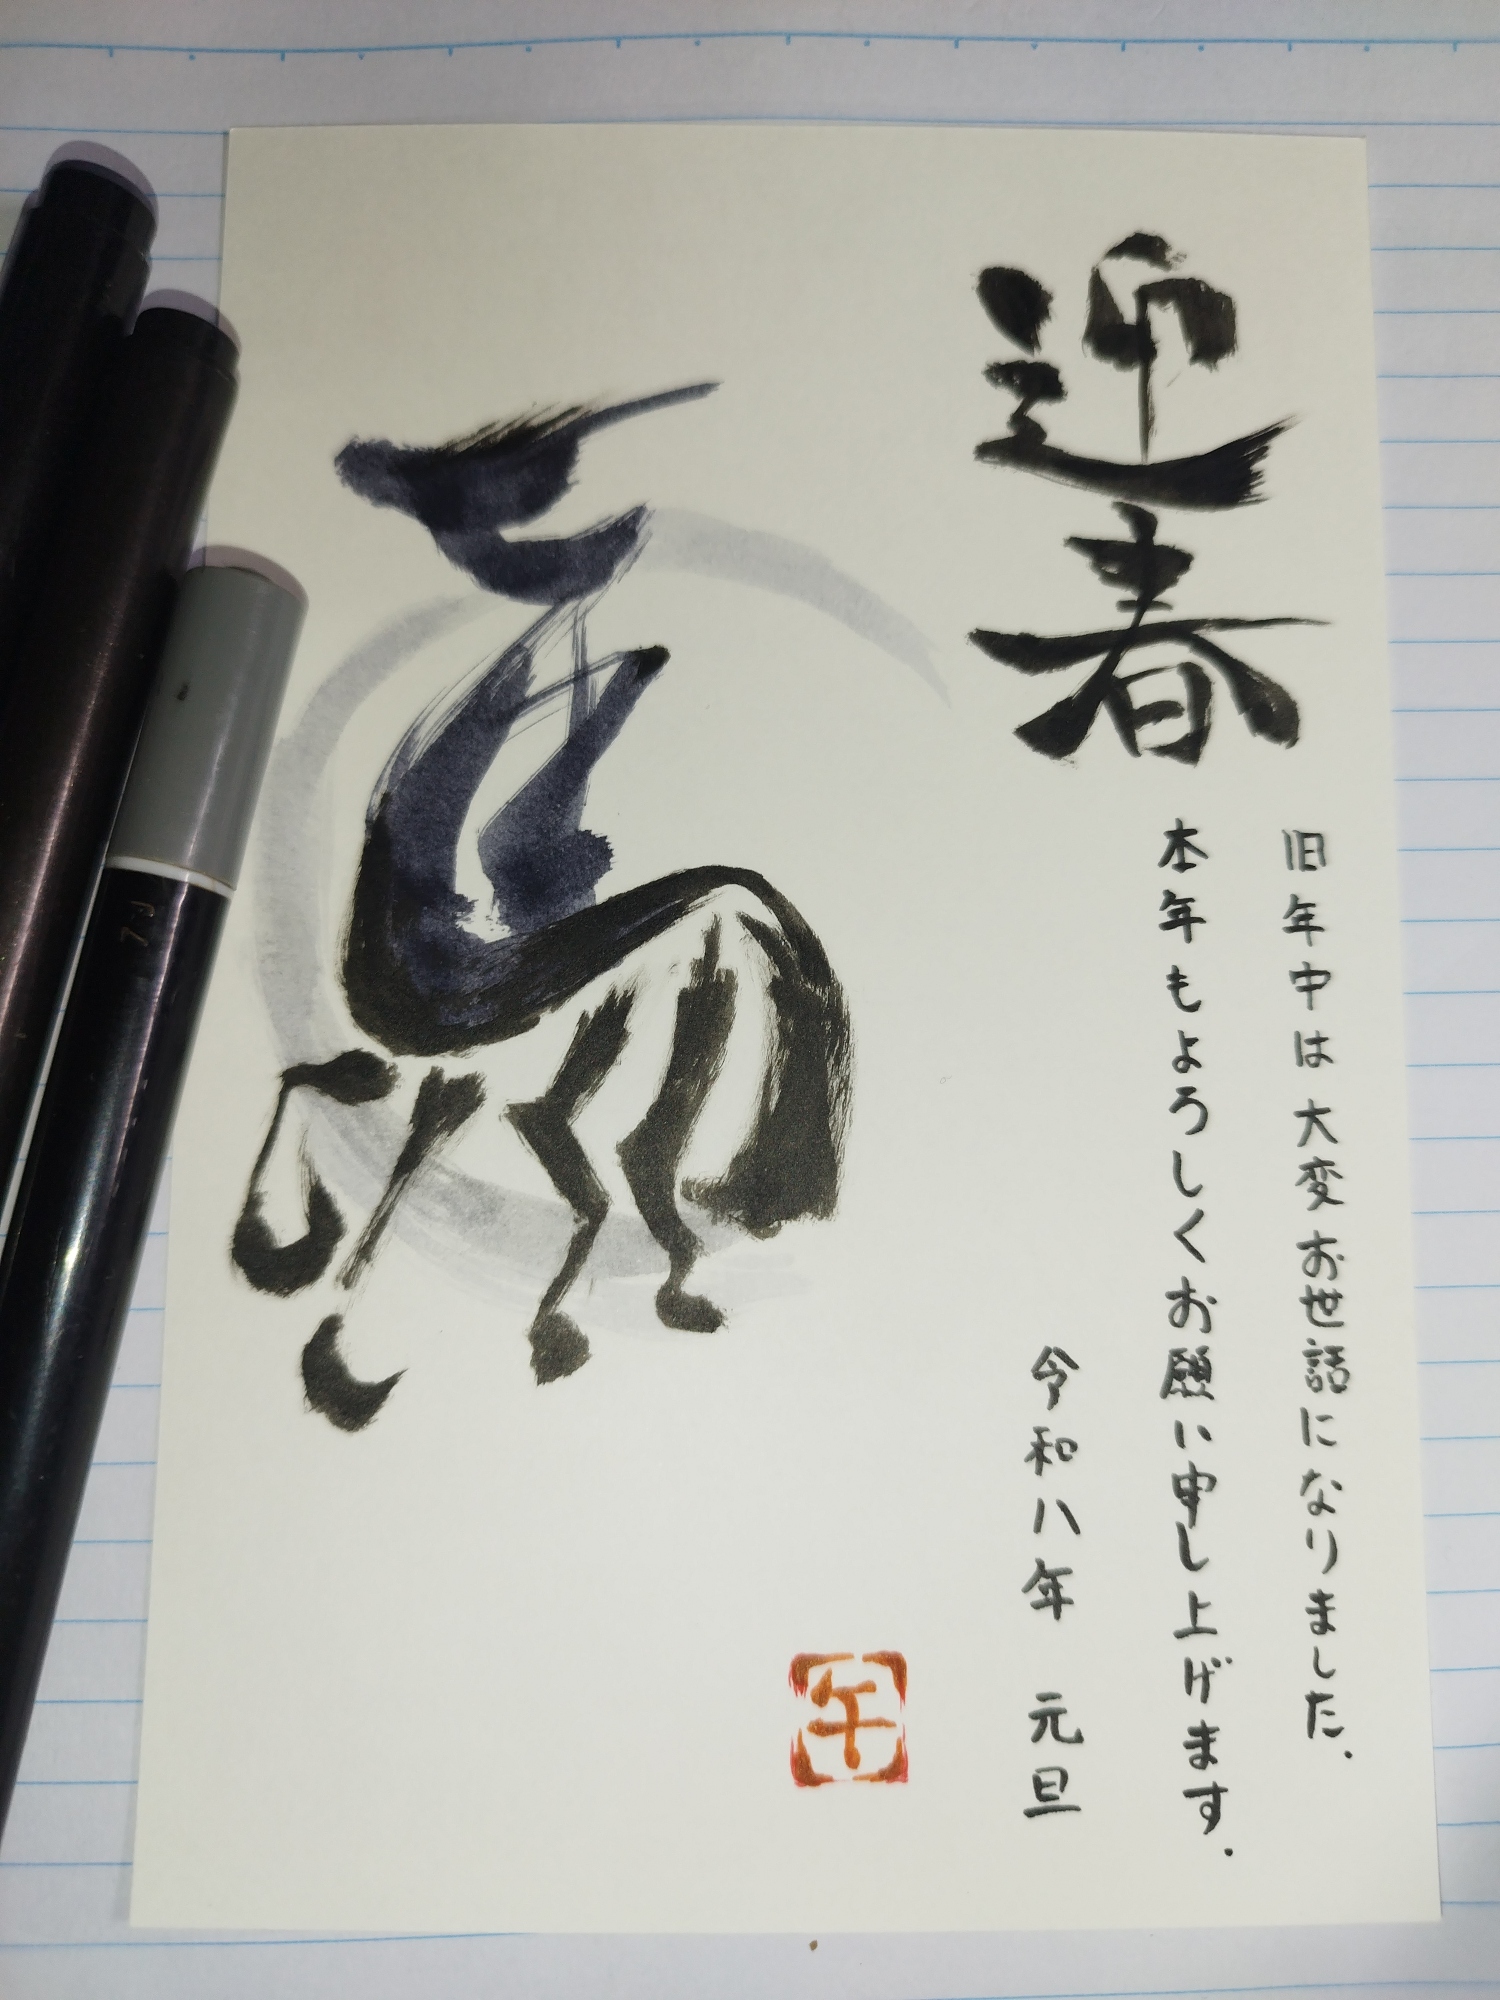 迎春
旧年中は大変お世話になりました.
本年もよろしくお願い申し上げます.
令和八年 元旦
午